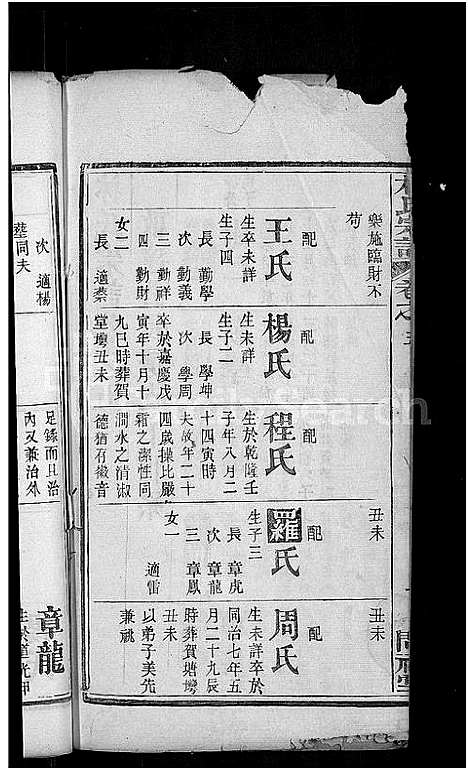 樂施臨財不
苟
配
王氏
生卒未詳
生子四
長 勤學
次 勤義
三 勤祥
四 勤財
女二
長 適蔡
配
楊氏
生未詳
生子二
長 學坤
次 學周
卒於嘉慶戊
寅年十月十
九巳時葬賀
堂墺丑未
配
程氏
生於乾隆壬
子年八月二
十四寅時
夫故年二十
四歲操比嚴
霜之潔性同
澗水之清淑
德猶有徽音
丑未
配
羅氏
生子三
長 章虎
次 章龍
三 章鳳
女一
適雷
丑未
配
周氏
生未詳卒於
同治七年五
月二十九辰
時葬賀塘墺
丑未
以弟子美先
兼祧
次 適楊
墓同夫
足錄而且治
內又兼治外
章龍